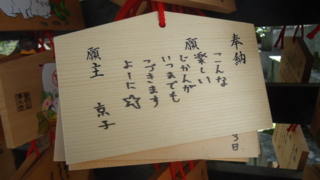 奉納
こんな
楽しい
願
じかんが
いつまでも
つづきます
よーに☆
願主 京子
3日